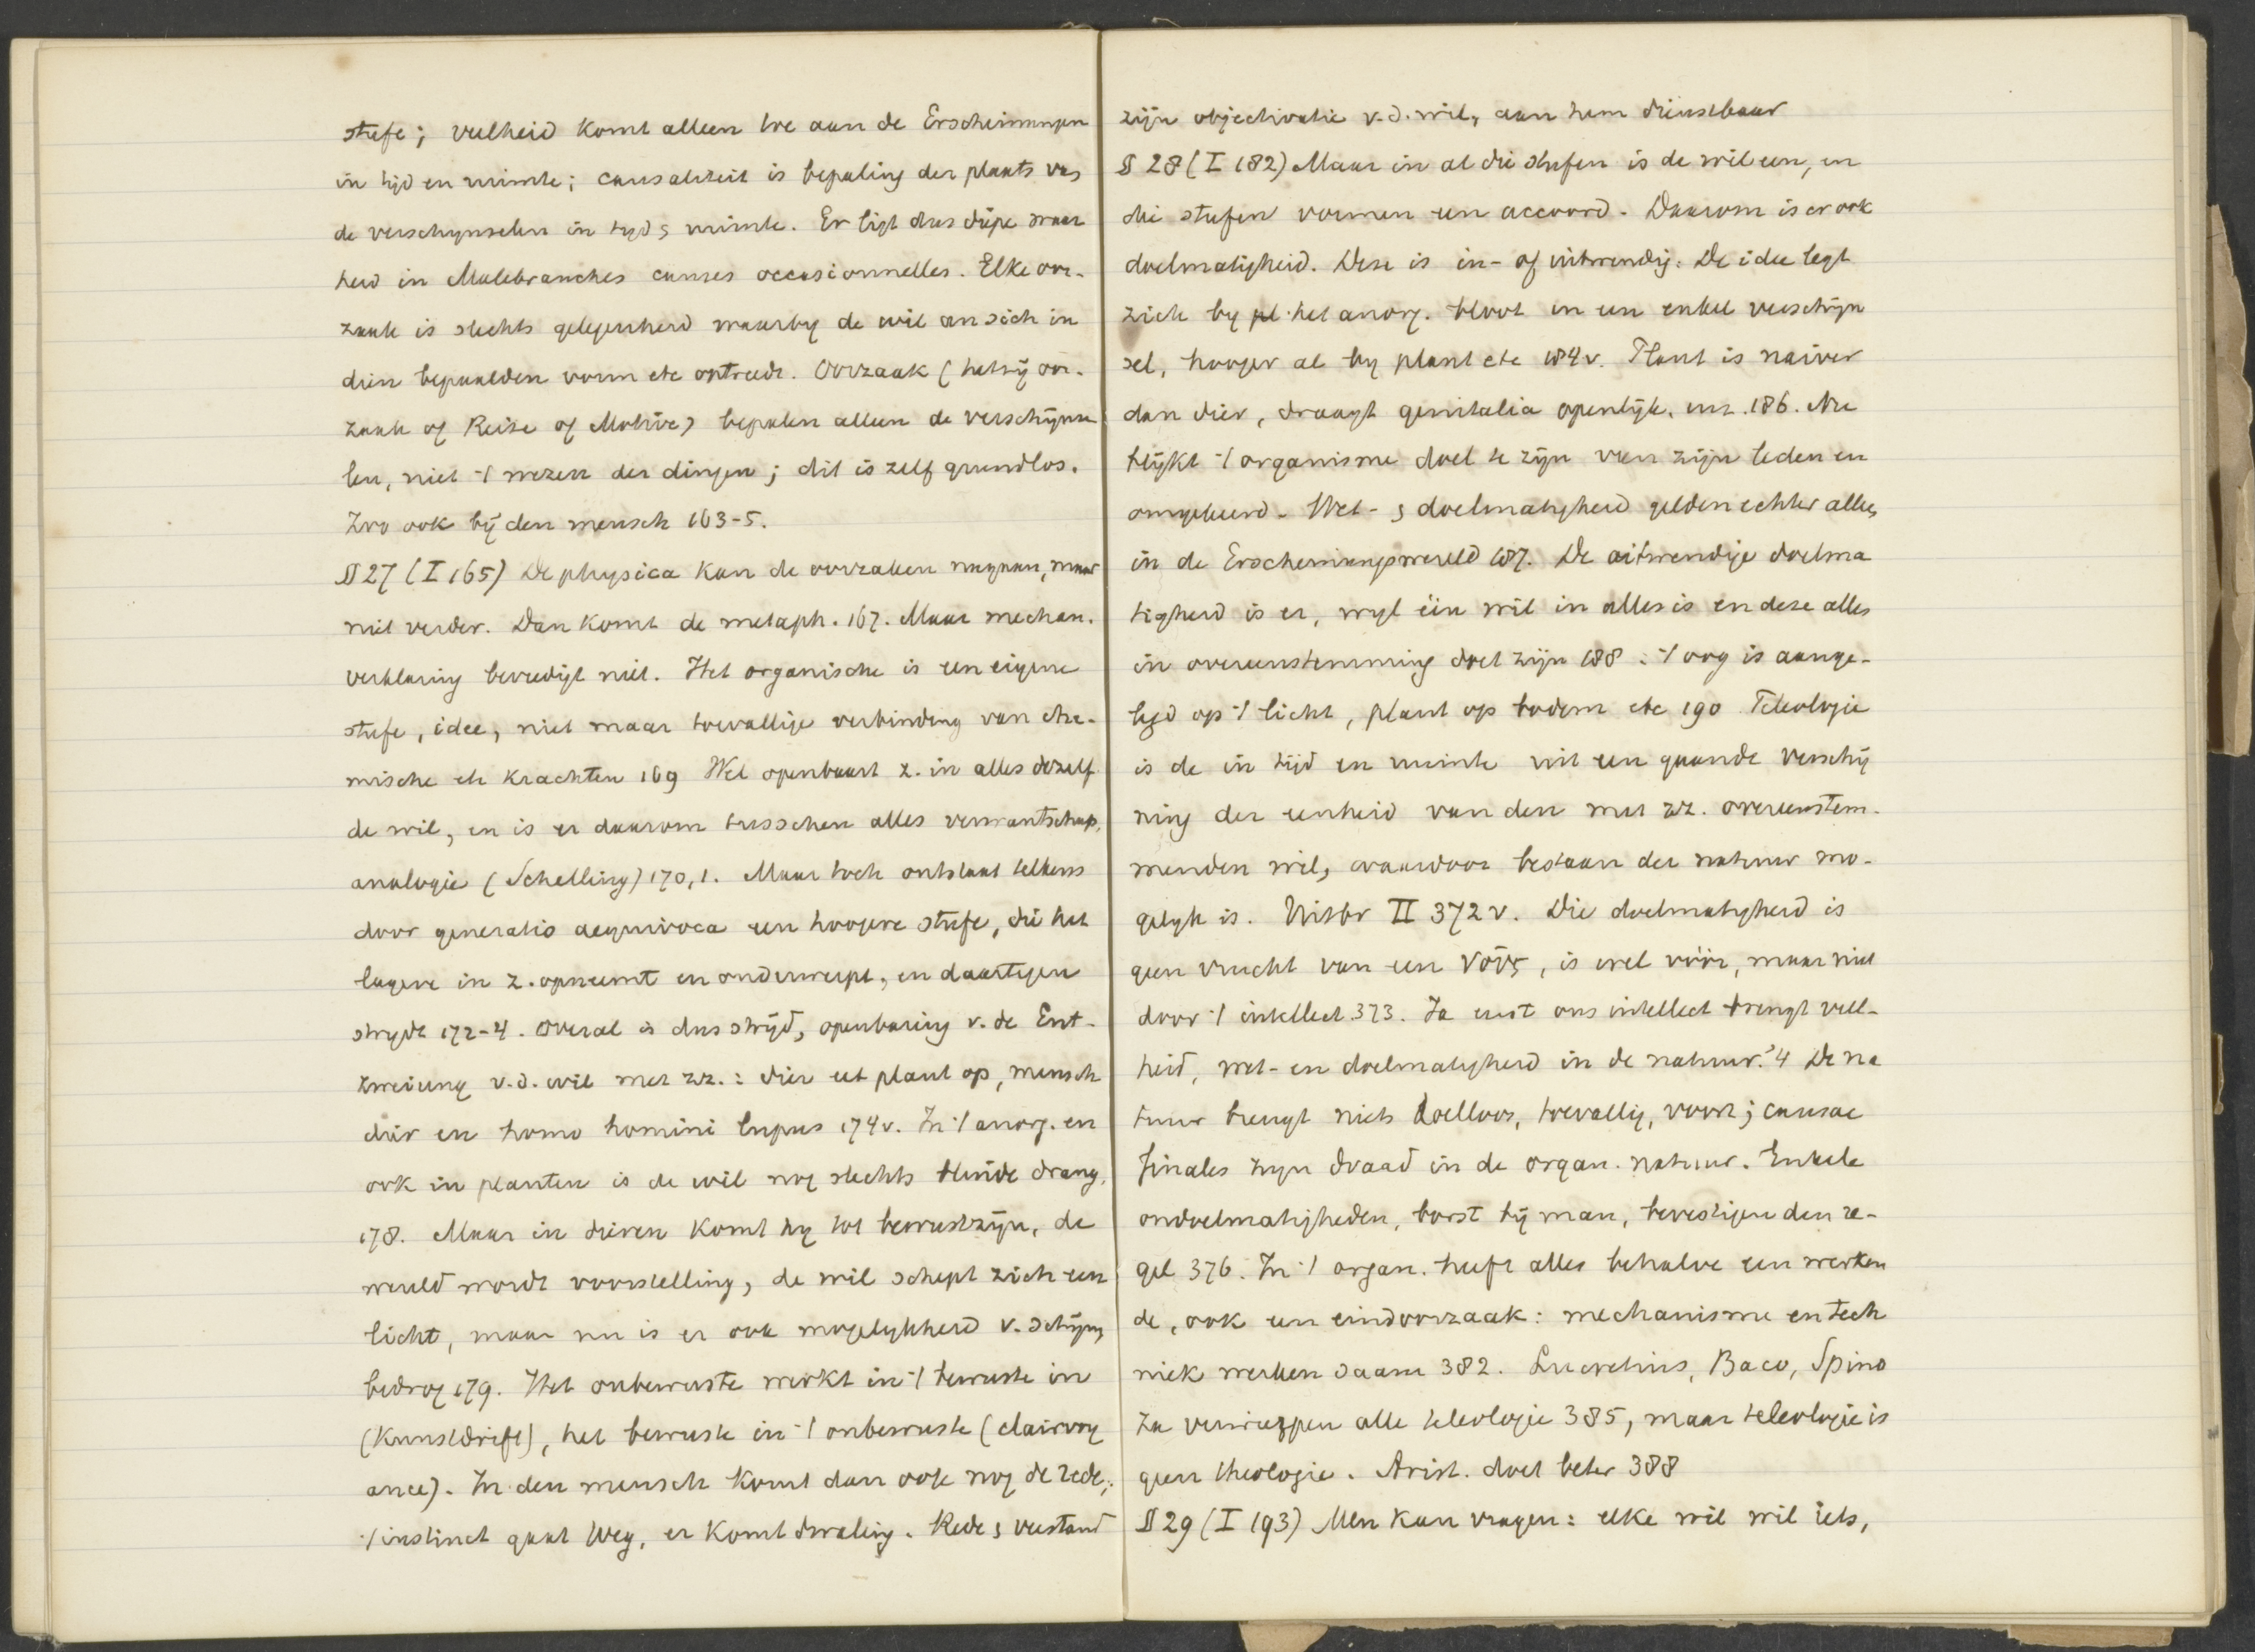 stufe; veelheid komt alleen toe aan de Erscheinungen
in tijd en ruimte; causaliteit is bepaling der plaats van
de verschynselen in tyd & ruimte. Er ligt dus diepe waar
heid in Malebranches causes occasionnelles. Elke oor-
zaak is slechts gelegenheid waarby de wil an sich in
dien bepaalden vorm etc optreedt. Oorzaak (hetzij oor-
zaak of Reize of Motive) bepalen alleen de verschijnse
len, niet 't wezen der dingen; dit is zelf grundlos.
Zoo ook bij den mensch 163-5.
§ 27 (I 165) De physica kan de oorzaken nagaan, maar
niet verder. Dan komt de metaph. 167. Maar mechan.
verklaring bevredigt niet. Het organische is een eigene
stufe, idee, niet maar toevallige verbinding van che-
mische etc krachten 169 Wel openbaart z. in alles dezelf
de wil, en is er daarom tusschen alles verwantschap,
analogie (Schelling) 170,1. Maar toch ontstaat telkens
door generatio aequivoca een hoogere stufe, die het
lagere in z. opneemt en onderwerpt, en daartegen
strydt 172-4. Overal is dus strijd, openbaring v. de Ent-
zweiung v.d. wil met zz.: dier eet plant op, mensch
dier en homo homini lupus 174v. In 't anorg. en
ook in planten is de wil nog slechts blinde drang,
178. Maar in dieren komt hy tot bewustzijn, de
wereld wordt voorstelling, de wil schept zich een
licht, maar nu is er ook mogelykheid v. schijn,
bedrog 179. Het onbewuste werkt in 't bewuste in
(Kunstdrift), het bewuste in 't onbewuste (clairvoy
ance). In den mensch komt dan ook nog de rede;
't instinct gaat weg, er komt dwaling. Rede & verstand
zijn objectivatie v.d. wil, aan hem dienstbaar
§ 28 (I 182) Maar in al die stufen is de wil een, en
die stufen vormen een accoord. Daarom is er ook
doelmatigheid. Deze is in- of uitwendig. De idee legt
zich by het anorg. bloot in een enkel verschijn
sel, hooger al by plant etc 184v. Plant is naiver
dan dier, draagt genitalia openlijk, enz. 186. Nu
blijkt 't organisme doel te zijn van zijn leden en
omgekeerd. Wet- & doelmatigheid gelden echter alleen
in de Erscheinungswereld 187. De uitwendige doelma
tigheid is er, wyl één wil in alles is en deze alles
in overeenstemming doet zijn 188: 't oog is aange-
legd op 't licht, plant op bodem etc 190 Teleologie
is de in tijd en ruimte uit een gaande verschij
ning der eenheid van den met zz. overeenstem-
menden wil, waardoor bestaan der natuur mo-
gelyk is. Uitbr II 372v. Die doelmatigheid is
geen vrucht van een νοῦς, is wel vóór, maar niet
door 't intellect 373. Ja eerst ons intellect brengt veel-
heid, wet- en doelmatigheid in de natuur. '4 De na
tuur brengt niets doelloos, toevallig, voort; causae
finales zyn draad in de organ. natuur. Enkele
ondoelmatigheden, borst bij man, bevestigen den re-
gel 376. In 't organ. heeft alles behalve een werken
de, ook een eindoorzaak: mechanisme en tech
niek werken saam 382. Lucretius, Baco, Spino
za verwierpen alle teleologie 385, maar teleologie is
geen theologie. Arist. doet beter 388
§ 29 (I 193) Men kan vragen: elke wil wil iets,